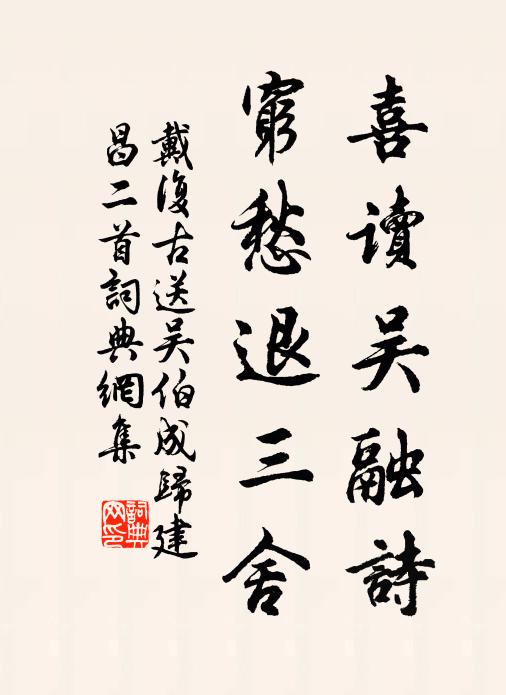 喜讀吴融詩
窮愁退三舍
戴復古送吴伯成歸建
昌二首詞典網集
詞典
网印